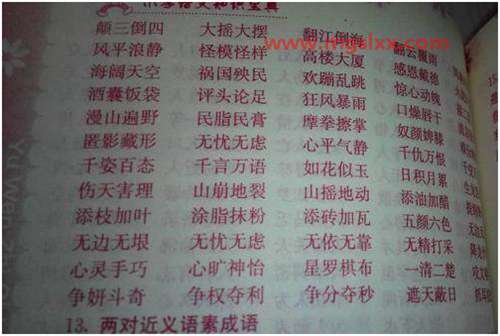 小学语文知识宝典
www.mgslxx.com
颠三倒四 大摇大摆 翻江倒海 翻云覆雨
风平浪静 怪模怪样 高楼大厦 感恩戴德
海阔天空 祸国殃民 欢蹦乱跳 惊心动魄
酒囊饭袋 评头论足 狂风暴雨 口燥唇干
漫山遍野 民脂民膏 摩拳擦掌 奴颜婢膝
匿影藏形 无忧无虑 心平气静 千仇万恨
千姿百态 千言万语 如花似玉 日积月累
伤天害理 山崩地裂 山摇地动 添油加醋
添枝加叶 涂脂抹粉 添砖加瓦 五颜六色
无边无垠 无忧无虑 无依无靠 无精打采
心灵手巧 心旷神怡 星罗棋布 一清二楚
争妍斗奇 争权夺利 争分夺秒 遮天蔽日
13. 两对近义语素成语